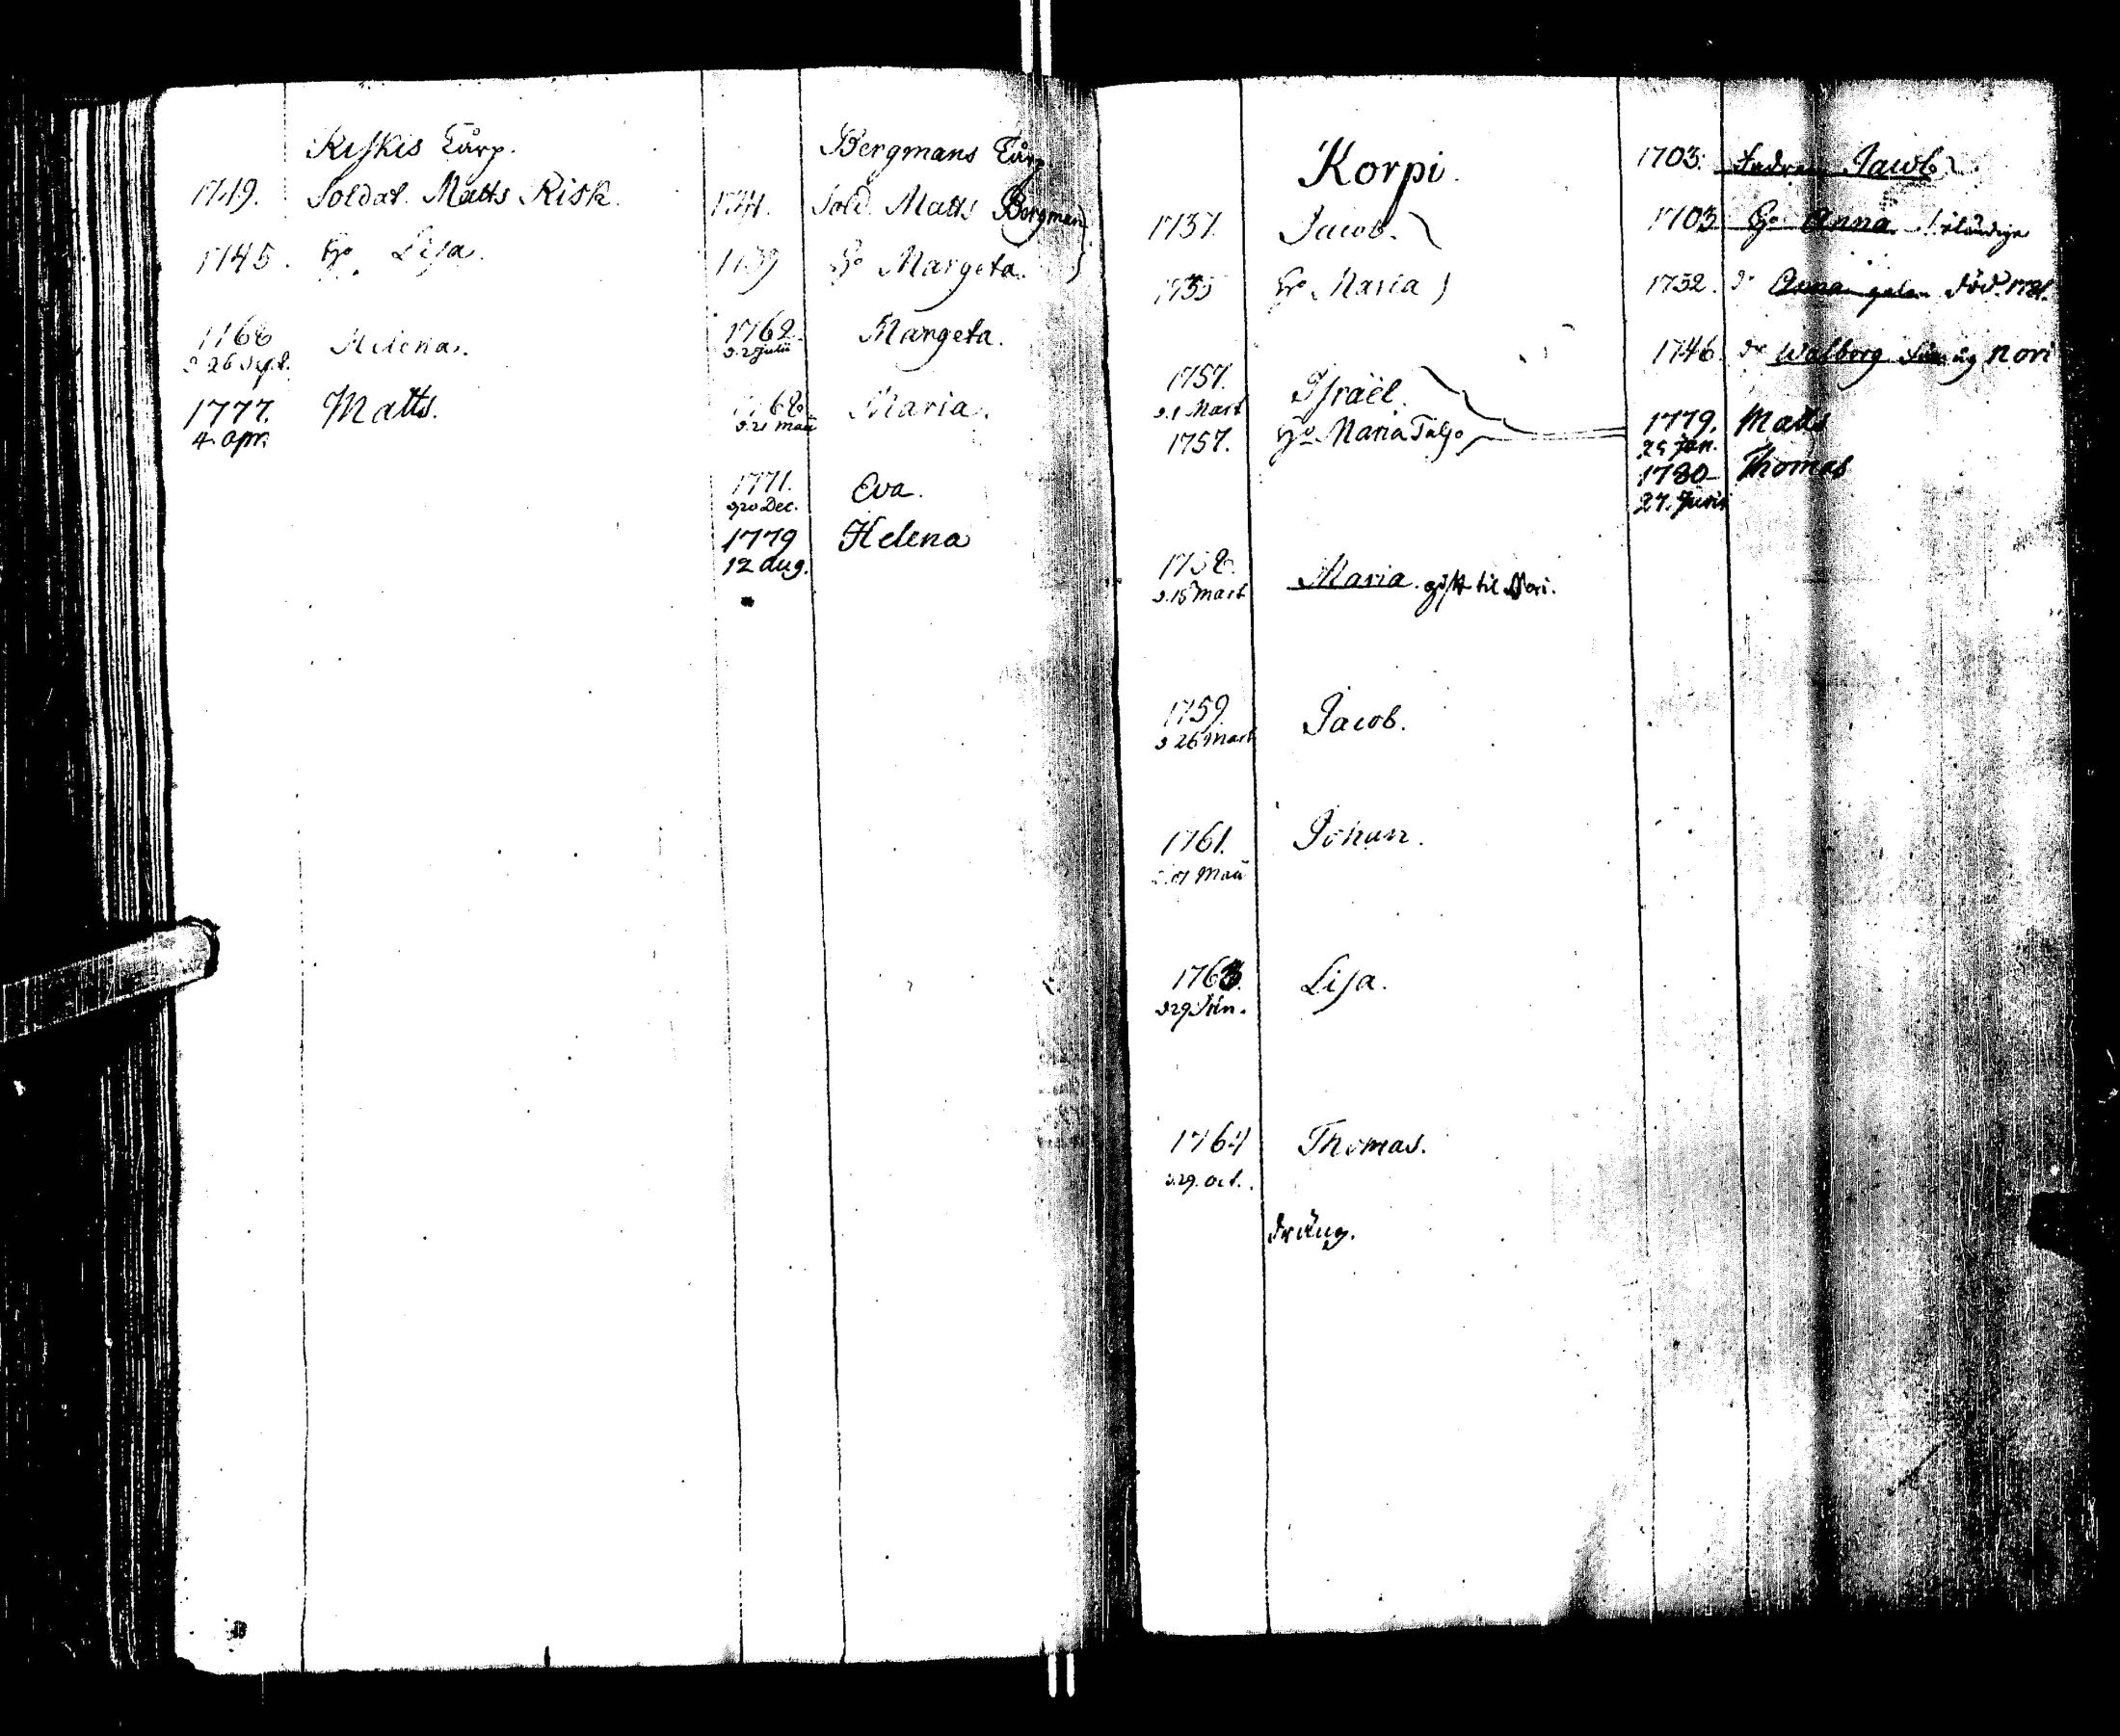 Riskis Torp.
1749. Soldat. Matts Risk.
1745. Ho Lisa.
1768 Helena.
d. 26 Sept.
1777. Matts.
4. apr.
Bergmans Torp.
1741. Sold. Matts Bergman
1739 Ho Margeta.
1762. Margeta.
d. 2 julii
1768 Maria.
d. 21 Maii
1771. Eva.
d. 20 Dec.
1779 Helena
12 aug.
Korpi.
1737. Jacob.
1735 Ho Maria
1757. Israël.
d. 1 Mart
1757. Ho Maria
1758. Maria. gift til Nori.
d. 15 Mart
1759. Jacob.
d. 26 Mart
1761. Johan.
Maii
1763. Lisa.
d. 29 Jun.
1764 Thomas.
d. 29. oct.
dräng.
1703. Jacob
1703 Ho Anna
1752. dr Anna död. 1781.
1746. dr Walborg Nori
1779. Matts
25 Jan.
1780 Thomas
27. Junii